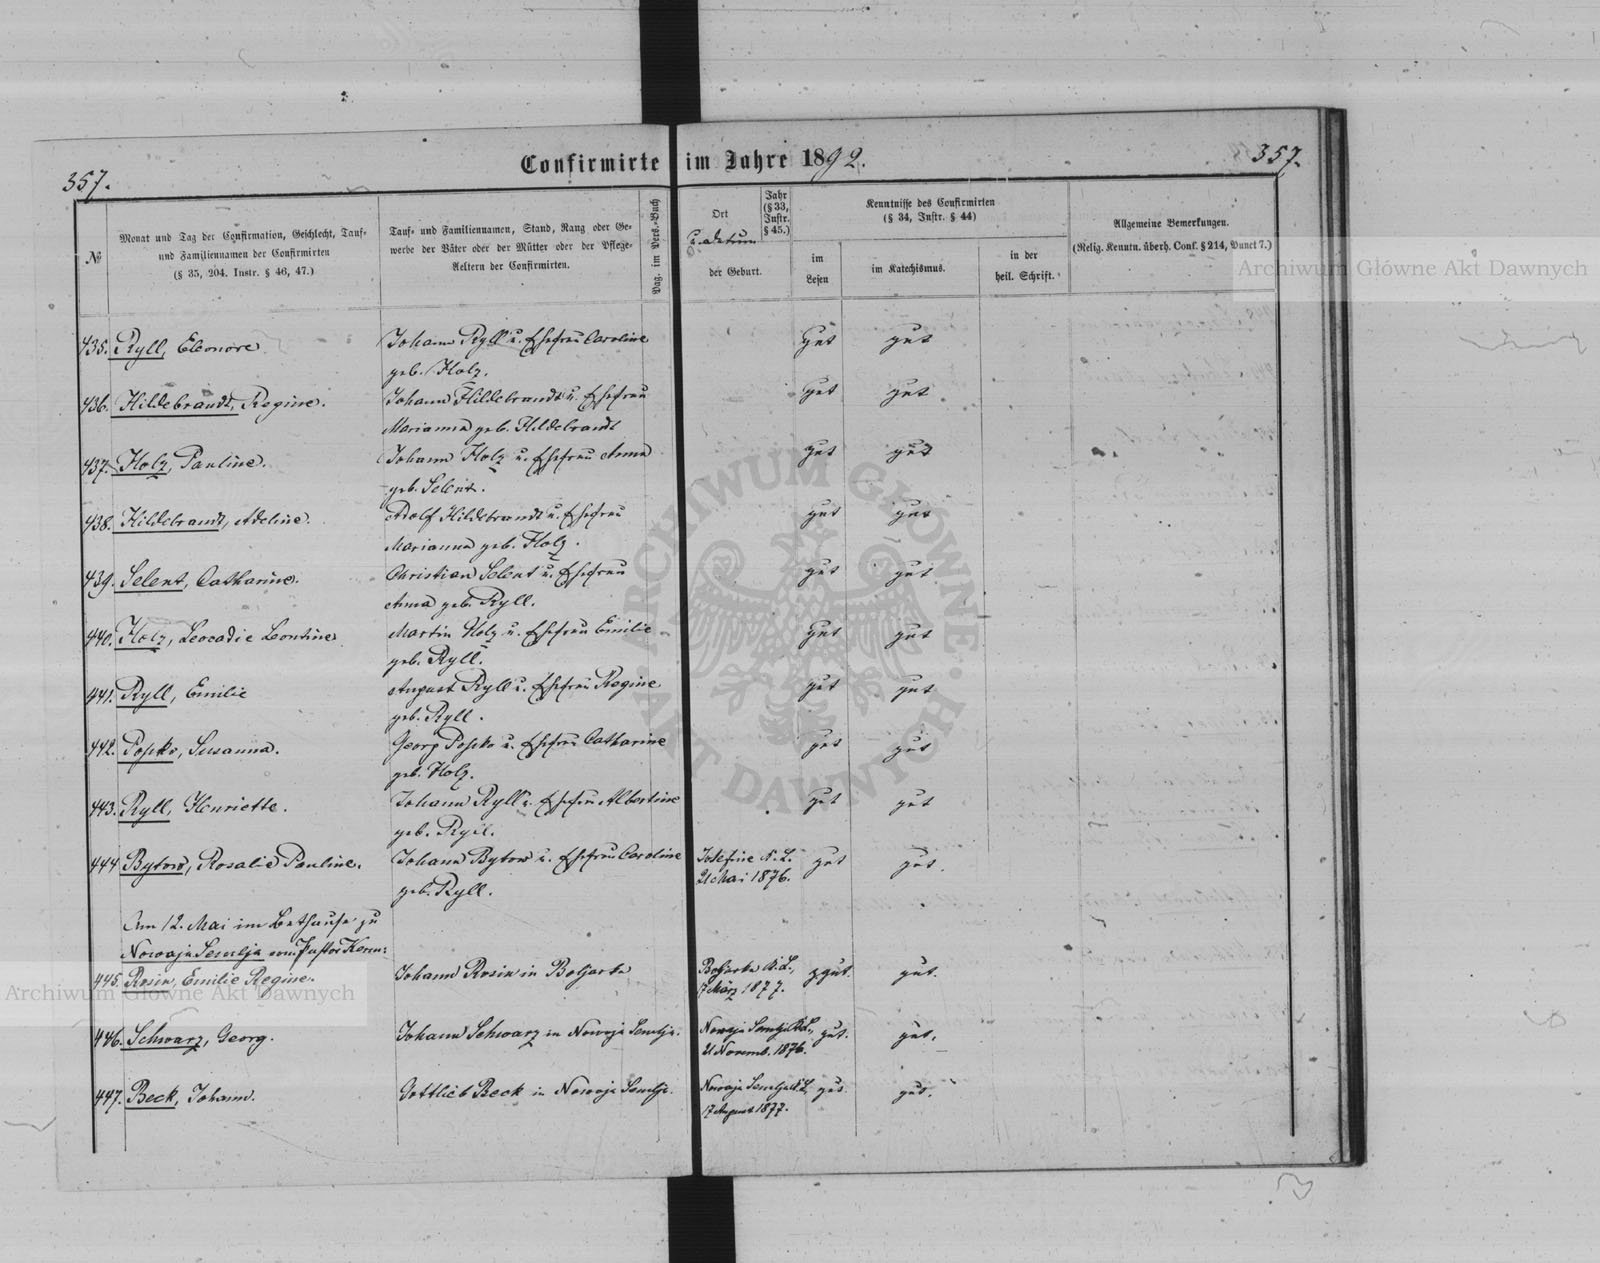 357.
Confirmirte im Jahre 1892.
357.
№
Monat und Tag der Confirmation, Geschlecht, Tauf-
und Familiennamen der Confirmirten
(§ 35, 204. Instr. § 46, 47.)
Tauf- und Familiennamen, Stand, Rang oder Ge-
werbe der Väter oder der Mütter oder der Pflege-
Aeltern der Confirmirten.
Pag. im Pers.-Buch
Ort
u. datum
der Geburt.
Jahr
(§ 33,
Instr.
§ 45.)
Kenntnisse des Confirmirten
(§ 34, Instr. § 44)
im
Lesen
im Katechismus.
in der
heil. Schrift.
Allgemeine Bemerkungen.
(Relig. Kenntn. überh. Conf. § 214, Punct 7.)
435. Ryll, Eleonore
Johann Ryll u. Ehefrau Caroline
geb. Holz.
gut gut
436. Hildebrandt, Regine.
Johann Hildebrandt u. Ehefrau
Marianna geb. Hildebrandt
gut gut
437. Holz, Pauline.
Johann Holz u. Ehefrau Anna
geb. Selent.
gut gut
438. Hildebrandt, Adeline.
Adolf Hildebrandt u. Ehefrau
Marianna geb. Holz.
gut gut
439. Selent, Catharine.
Christian Selent u. Ehefrau
Anna geb. Ryll.
gut gut
440. Holz, Leocadie Leontine
Martin Holz u. Ehefrau Emilie
geb. Ryll.
gut gut
441. Ryll, Emilie
August Ryll u. Ehefrau Regine
geb. Ryll.
gut gut
442. Popko, Susanna.
Georg Popko u. Ehefrau Catharine
geb. Holz.
gut gut
443. Ryll, Henriette.
Johann Ryll u. Ehefrau Albertine
geb. Ryll.
gut gut
444. Bytow, Rosalie Pauline.
Johann Bytow u. Ehefrau Caroline
geb. Ryll.
Josefine K. L.
21 Mai 1876.
gut gut.
Am 12. Mai im Bethause zu
Nowaja Semlja vom Pastor Kerm:
445. Rosin, Emilie Regine.
Johann Rosin in Boljarka
Boljarka K. L.,
17 März 1877.
z gut. gut.
446. Schwarz, Georg.
Johann Schwarz in Nowaja Semlja.
Nowaja Semlja K. L.,
21 Novemb. 1876.
gut. gut.
447. Beck, Johann.
Gottlieb Beck in Nowaja Semlja.
Nowaja Semlja K. L.
17 August 1877.
gut gut.
Archiwum Główne Akt Dawnych
Archiwum Główne Akt Dawnych
ARCHIWUM GŁÓWNE AKT DAWNYCH